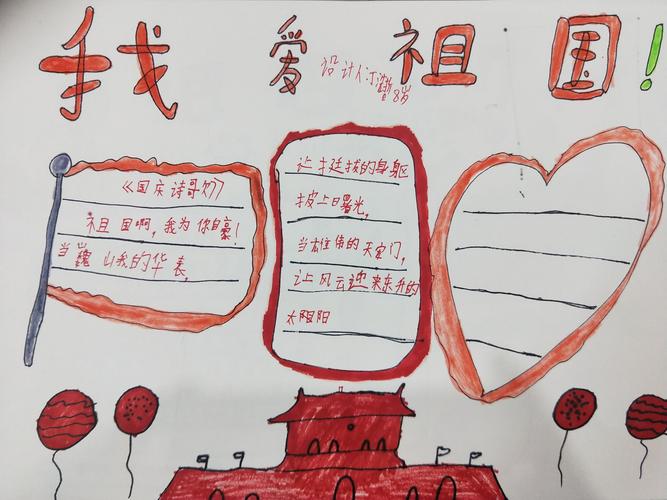 我爱祖国!
设计人:江 8岁
《国庆诗歌》
祖国啊,我为你自豪!
当巍山我的华表,
让挺拔的身躯
披上曙光,
当雄伟的天安门,
让风云迎来东升的
太阻阳